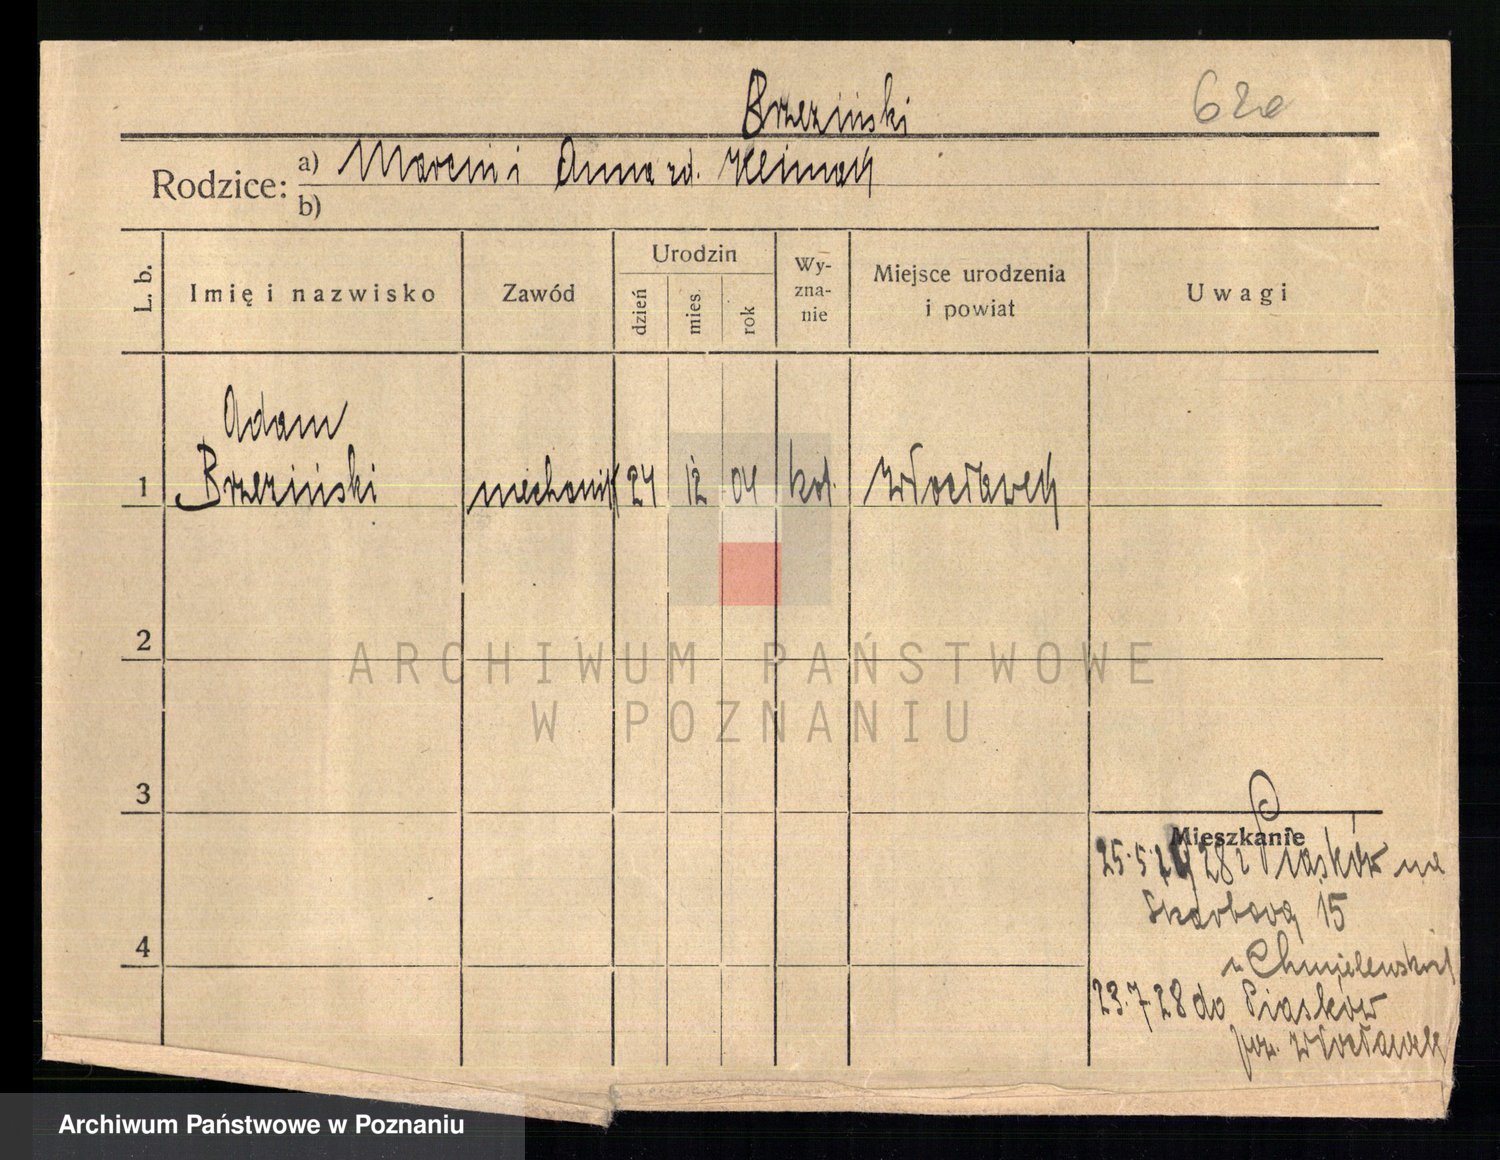 Brzeziński
62a
Rodzice: a) Marcin i Anna rd. Klimack
b)
L. b.
Imię i nazwisko
Zawód
Urodzin
dzień
mies.
rok
Wy-
zna-
nie
Miejsce urodzenia
i powiat
Uwagi
Adam
1 Brzeziński mechanik 24 12 04 kat. Włocławek
2
3
4
Mieszkanie
25.5. 28 z Piasków na
Skarbową 15
u Chmielewskich
23.7.28 do Piasków
pow. Włocławek
ARCHIWUM PAŃSTWOWE
W POZNANIU
Archiwum Państwowe w Poznaniu